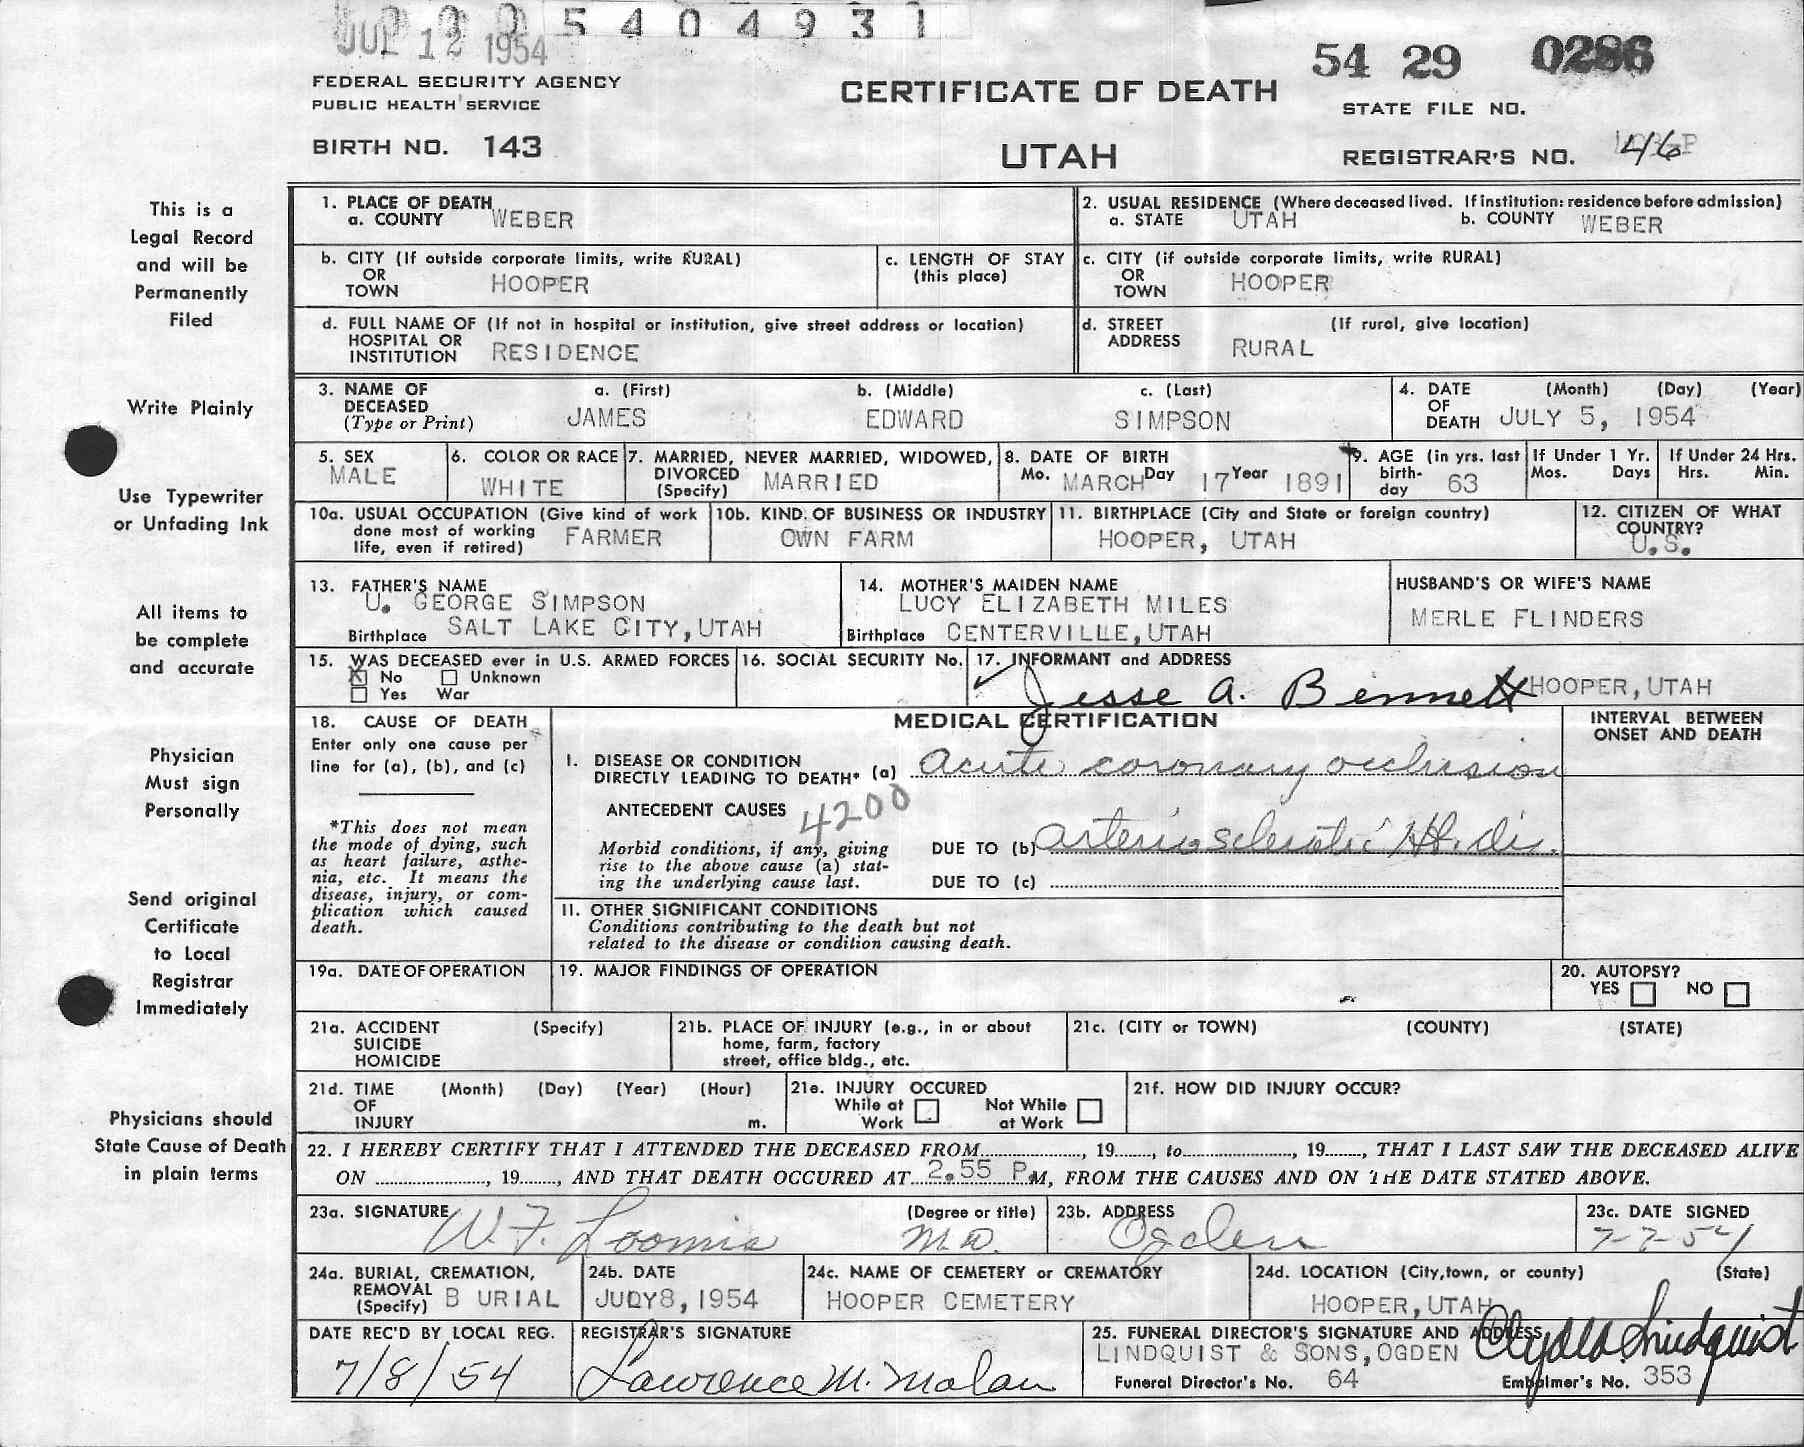 JUL 12 1954
5 4 0 4 9 3 1
54 29 0286
FEDERAL SECURITY AGENCY
PUBLIC HEALTH SERVICE
CERTIFICATE OF DEATH
STATE FILE NO.
BIRTH NO. 143
UTAH
REGISTRAR'S NO. 46
This is a
Legal Record
and will be
Permanently
Filed
Write Plainly
Use Typewriter
or Unfading Ink
All items to
be complete
and accurate
Physician
Must sign
Personally
Send original
Certificate
to Local
Registrar
Immediately
Physicians should
State Cause of Death
in plain terms
1. PLACE OF DEATH
a. COUNTY WEBER
2. USUAL RESIDENCE (Where deceased lived. If institution: residence before admission)
a. STATE UTAH b. COUNTY WEBER
b. CITY (If outside corporate limits, write RURAL)
OR
TOWN HOOPER
c. LENGTH OF STAY
(this place)
c. CITY (if outside corporate limits, write RURAL)
OR
TOWN HOOPER
d. FULL NAME OF (If not in hospital or institution, give street address or location)
HOSPITAL OR
INSTITUTION RESIDENCE
d. STREET (If rurol, give location)
ADDRESS RURAL
3. NAME OF
DECEASED
(Type or Print)
a. (First) b. (Middle) c. (Last)
JAMES EDWARD SIMPSON
4. DATE (Month) (Day) (Year)
OF
DEATH JULY 5, 1954
5. SEX
MALE
6. COLOR OR RACE
WHITE
7. MARRIED, NEVER MARRIED, WIDOWED,
DIVORCED
(Specify) MARRIED
8. DATE OF BIRTH
Mo. MARCH Day 17 Year 1891
9. AGE (in yrs. last
birth-
day 63
If Under 1 Yr.
Mos. Days
If Under 24 Hrs.
Hrs. Min.
10a. USUAL OCCUPATION (Give kind of work
done most of working
life, even if retired) FARMER
10b. KIND OF BUSINESS OR INDUSTRY
OWN FARM
11. BIRTHPLACE (City and State or foreign country)
HOOPER, UTAH
12. CITIZEN OF WHAT
COUNTRY?
U.S.
13. FATHER'S NAME
U. GEORGE SIMPSON
Birthplace SALT LAKE CITY, UTAH
14. MOTHER'S MAIDEN NAME
LUCY ELIZABETH MILES
Birthplace CENTERVILLE, UTAH
HUSBAND'S OR WIFE'S NAME
MERLE FLINDERS
15. WAS DECEASED ever in U.S. ARMED FORCES
X No Unknown
Yes War
16. SOCIAL SECURITY No.
17. INFORMANT and ADDRESS
Jesse A. Bennett HOOPER, UTAH
18. CAUSE OF DEATH
Enter only one cause per
line for (a), (b), and (c)
*This does not mean
the mode of dying, such
as heart failure, asthe-
nia, etc. It means the
disease, injury, or com-
plication which caused
death.
MEDICAL CERTIFICATION
INTERVAL BETWEEN
ONSET AND DEATH
I. DISEASE OR CONDITION
DIRECTLY LEADING TO DEATH* (a) Acute coronary occlusion
ANTECEDENT CAUSES 4200
Morbid conditions, if any, giving
rise to the above cause (a) stat-
ing the underlying cause last.
DUE TO (b) arteriosclerotic Ht. dis.
DUE TO (c)
II. OTHER SIGNIFICANT CONDITIONS
Conditions contributing to the death but not
related to the disease or condition causing death.
19a. DATE OF OPERATION
19. MAJOR FINDINGS OF OPERATION
20. AUTOPSY?
YES NO
21a. ACCIDENT (Specify)
SUICIDE
HOMICIDE
21b. PLACE OF INJURY (e.g., in or about
home, farm, factory
street, office bldg., etc.
21c. (CITY or TOWN) (COUNTY) (STATE)
21d. TIME (Month) (Day) (Year) (Hour)
OF
INJURY m.
21e. INJURY OCCURED
While at Not While
Work at Work
21f. HOW DID INJURY OCCUR?
22. I HEREBY CERTIFY THAT I ATTENDED THE DECEASED FROM........, 19......, to........, 19......, THAT I LAST SAW THE DECEASED ALIVE
ON ........, 19......, AND THAT DEATH OCCURED AT 2.55 P.M, FROM THE CAUSES AND ON THE DATE STATED ABOVE.
23a. SIGNATURE (Degree or title)
W. F. Loomis M.D.
23b. ADDRESS
Ogden
23c. DATE SIGNED
7-7-54
24a. BURIAL, CREMATION,
REMOVAL
(Specify) BURIAL
24b. DATE
JULY 8, 1954
24c. NAME OF CEMETERY or CREMATORY
HOOPER CEMETERY
24d. LOCATION (City, town, or county) (State)
HOOPER, UTAH
DATE REC'D BY LOCAL REG.
7/8/54
REGISTRAR'S SIGNATURE
Lawrence M. Malan
25. FUNERAL DIRECTOR'S SIGNATURE AND ADDRESS
LINDQUIST & SONS, OGDEN Lindquist
Funeral Director's No. 64 Embalmer's No. 353